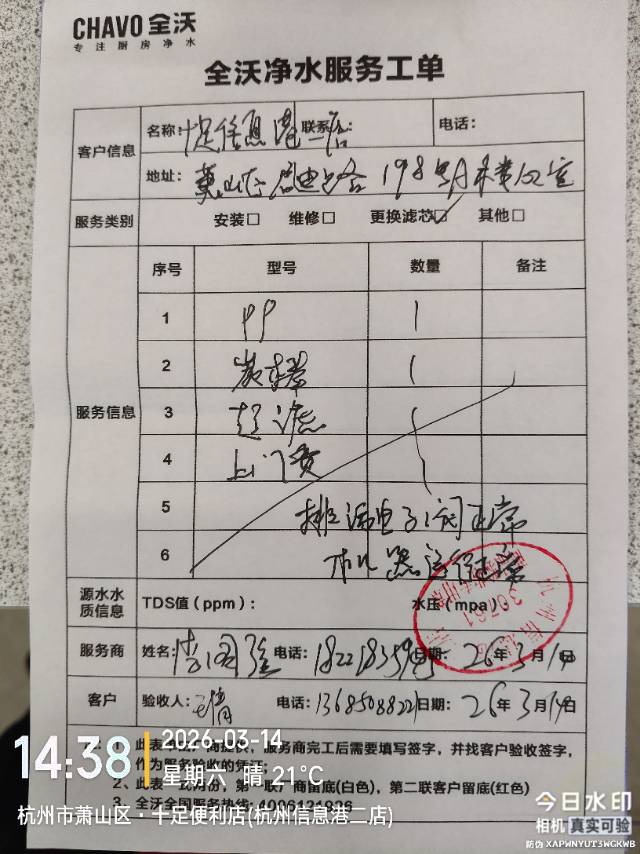 CHAVO 全沃
专注厨房净水
全沃净水服务工单
客户信息
名称: 十足信息港二店 联系: 电话:
地址: 萧山区 198号A
服务类别 安装□ 维修□ 更换滤芯☑ 其他□
服务信息
序号 型号 数量 备注
1 PP 1
2 炭棒 1
3 超滤 1
4 上门费 1
5 排污电子阀正常
6 机器运行正常
源水水质信息 TDS值(ppm): 水压(mpa):
服务商 姓名: 电话: 日期: 26年3月14日
客户 验收人: 电话: 日期: 26年3月14日
1、此表单 服务商完工后需要填写签字,并找客户验收签字,
作为服务验收的凭证;
2、此表一 第一联厂商留底(白色),第二联客户留底(红色)
3、全沃全国服务热线:
14:38
2026-03-14
星期六 晴 21℃
杭州市萧山区·十足便利店(杭州信息港二店)
今日水印
相机 真实可验
防伪 XAPWNYUT3WGKWB